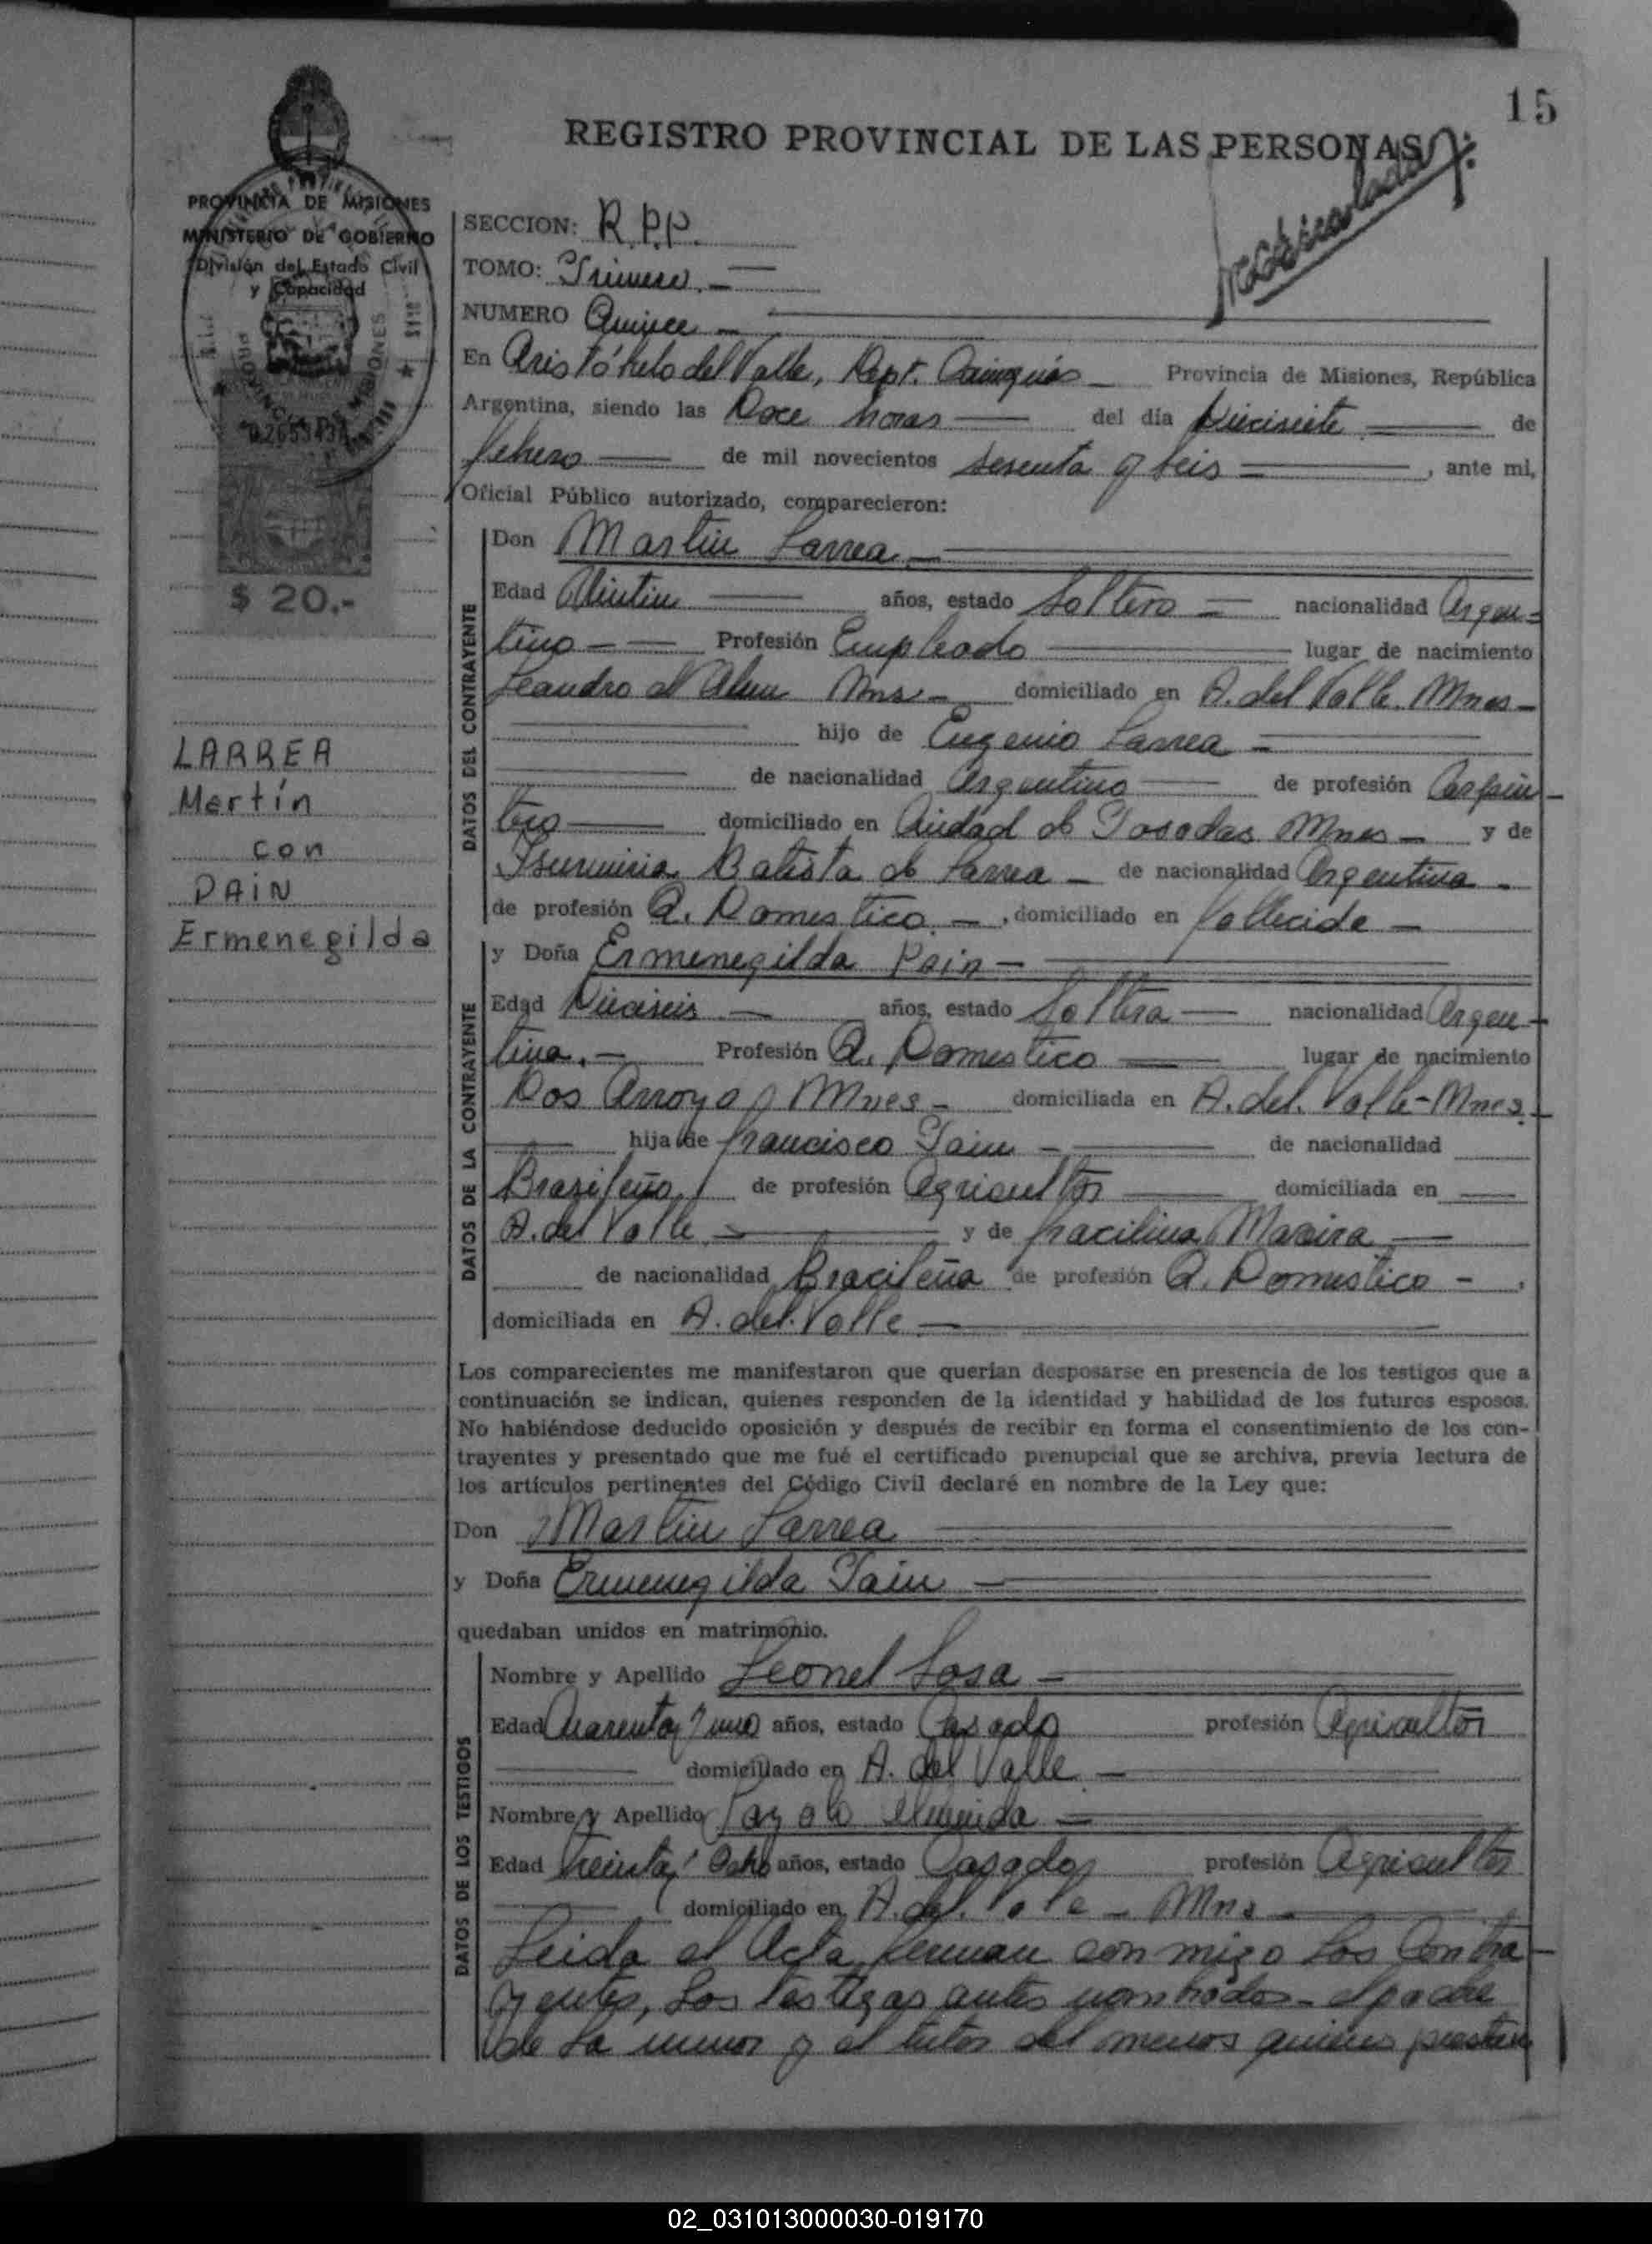 15
REGISTRO PROVINCIAL DE LAS PERSONAS
PROVINCIA DE MISIONES
MINISTERIO DE GOBIERNO
División del Estado Civil
y Capacidad
$ 20.-
LARREA
Martín
con
PAIN
Ermenegilda
SECCION: R.P.P.
TOMO: Primero.—
NUMERO Quince —
En Aristóbulo del Valle, Dept. Cainguás — Provincia de Misiones, República
Argentina, siendo las Doce horas — del día Diecisiete — de
febrero — de mil novecientos sesenta y seis —, ante mi,
Oficial Público autorizado, comparecieron:
DATOS DEL CONTRAYENTE
Don Martin Larrea.—
Edad — años, estado Soltero — nacionalidad Argen-
tino — Profesión Empleado — lugar de nacimiento
Leandro N Alem Mns — domiciliado en A. del Valle. Mnes —
hijo de Eugenio Larrea —
de nacionalidad Argentino — de profesión Carpin-
tero — domiciliado en Ciudad de Posadas Mnes — y de
Batista de Larrea — de nacionalidad Argentina —
de profesión Q. Domestico. —, domiciliado en Fallecida —
DATOS DE LA CONTRAYENTE
y Doña Ermenegilda Pain —
Edad Dieciseis — años, estado Soltera — nacionalidad Argen-
tina. — Profesión Q. Domestico — lugar de nacimiento
Dos Arroyos Mnes — domiciliada en A. del. Valle - Mnes. —
hija de Francisco Pain — de nacionalidad
Brasileño de profesión Agricultor — domiciliada en —
A. del Valle — y de Maciira —
de nacionalidad Bracileña de profesión Q. Domestico —.
domiciliada en A. del. Valle —
Los comparecientes me manifestaron que querían desposarse en presencia de los testigos que a
continuación se indican, quienes responden de la identidad y habilidad de los futuros esposos.
No habiéndose deducido oposición y después de recibir en forma el consentimiento de los con-
trayentes y presentado que me fué el certificado prenupcial que se archiva, previa lectura de
los artículos pertinentes del Código Civil declaré en nombre de la Ley que:
Don Martin Larrea
y Doña Ermenegilda Pain —
quedaban unidos en matrimonio.
DATOS DE LOS TESTIGOS
Nombre y Apellido Leonel Sosa —
Edad Cuarenta y uno años, estado Casado profesión Agricultor
domiciliado en A. del Valle —
Nombre y Apellido Almeida —
Edad treinta y Ocho años, estado Casado profesión Agricultor
domiciliado en A. del. Valle — Mns —
Leida el Acta firman con migo Los Contra-
yentes, Los testigos antes nombrados — el padre
de La menor y el tutor del menor quienes prestan
02_031013000030-019170